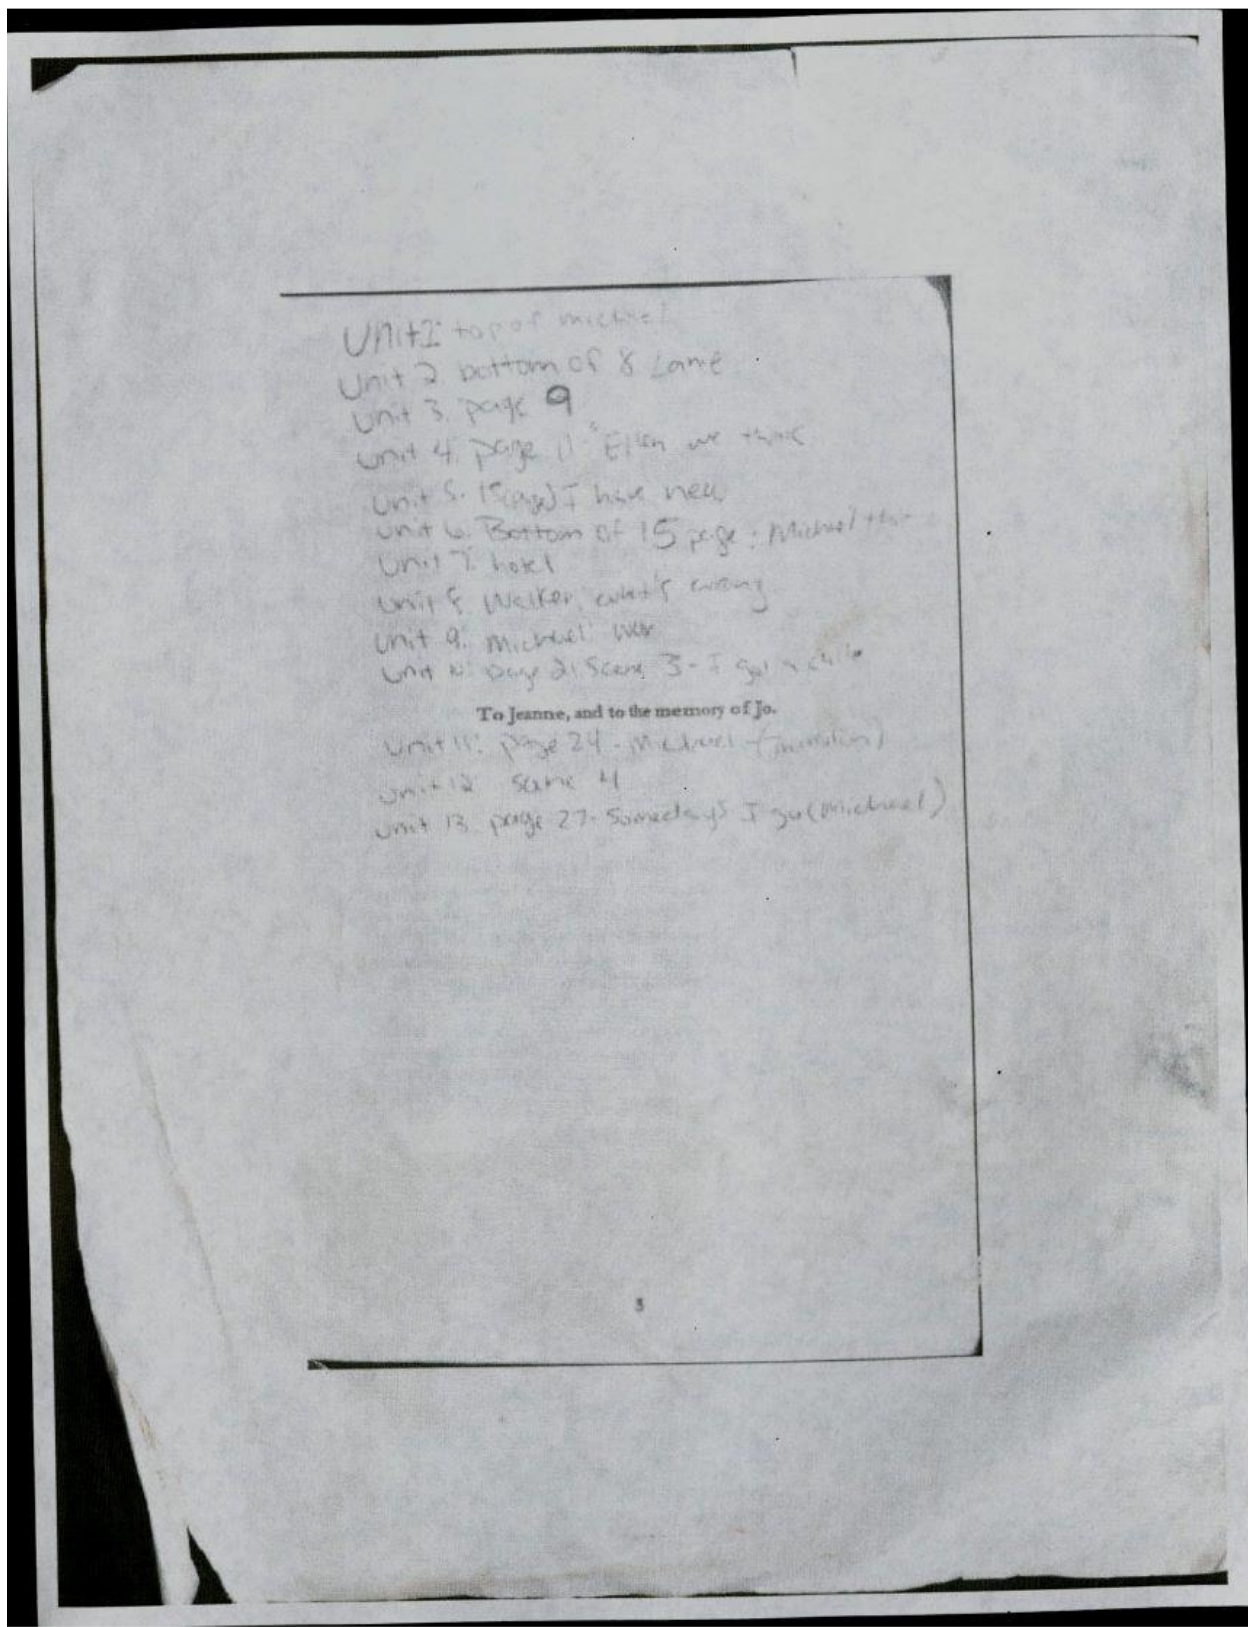 Unit 1: top of michael
Unit 2 bottom of 8 Lame
Unit 3. page 9
Unit 4. page 11 "Ellen we think
Unit 5. 15(page) I have new
Unit 6. Bottom of 15 page: Michael
Unit 7: hotel
Unit 8 Walker, what's wrong
Unit 9: Michael:
Unit 10: page 21 Scene 3- I got a
To Jeanne, and to the memory of Jo.
Unit 11: page 24 - Michael -
Unit 12 Scene 4
Unit 13. page 27- Somedays I go (Michael)
3